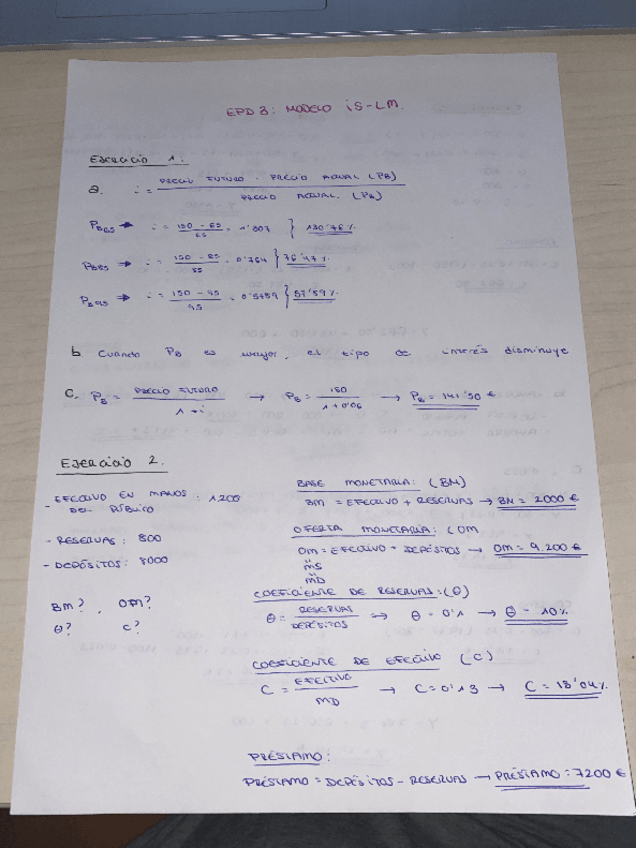 EPD 3: MODELO IS-LM.
EJERCICIO 1:
a. i = PRECIO FUTURO - PRECIO ACTUAL (PB) / PRECIO ACTUAL (PB)
PB65 → i = 150 - 65 / 65 = 1'307 } 130'76%
PB85 → i = 150 - 85 / 85 = 0'764 } 76'47%
PB95 → i = 150 - 95 / 95 = 0'5789 } 57'89%
b Cuando PB es mayor, el tipo de interés disminuye
C. PB = PRECIO FUTURO / 1 + i → PB = 150 / 1 + 0'06 → PB = 141'50 €
EJERCICIO 2.
- EFECTIVO EN MANOS DEL PÚBLICO : 1.200
- RESERVAS : 800
- DEPÓSITOS : 8000
BM? , OM?
θ? c?
BASE MONETARIA: (BM)
BM = EFECTIVO + RESERVAS → BM = 2000 €
OFERTA MONETARIA: (OM
OM = EFECTIVO + DEPÓSITOS → OM = 9.200 €
"
MS
"
MD
COEFICIENTE DE RESERVAS: (θ)
θ = RESERVAS / DEPÓSITOS → θ = 0'1 → θ = 10%
COEFICIENTE DE EFECTIVO (C)
C = EFECTIVO / MD → C = 0'13 → C = 13'04%
PRÉSTAMO:
PRÉSTAMO = DEPÓSITOS - RESERVAS → PRÉSTAMO : 7200 €